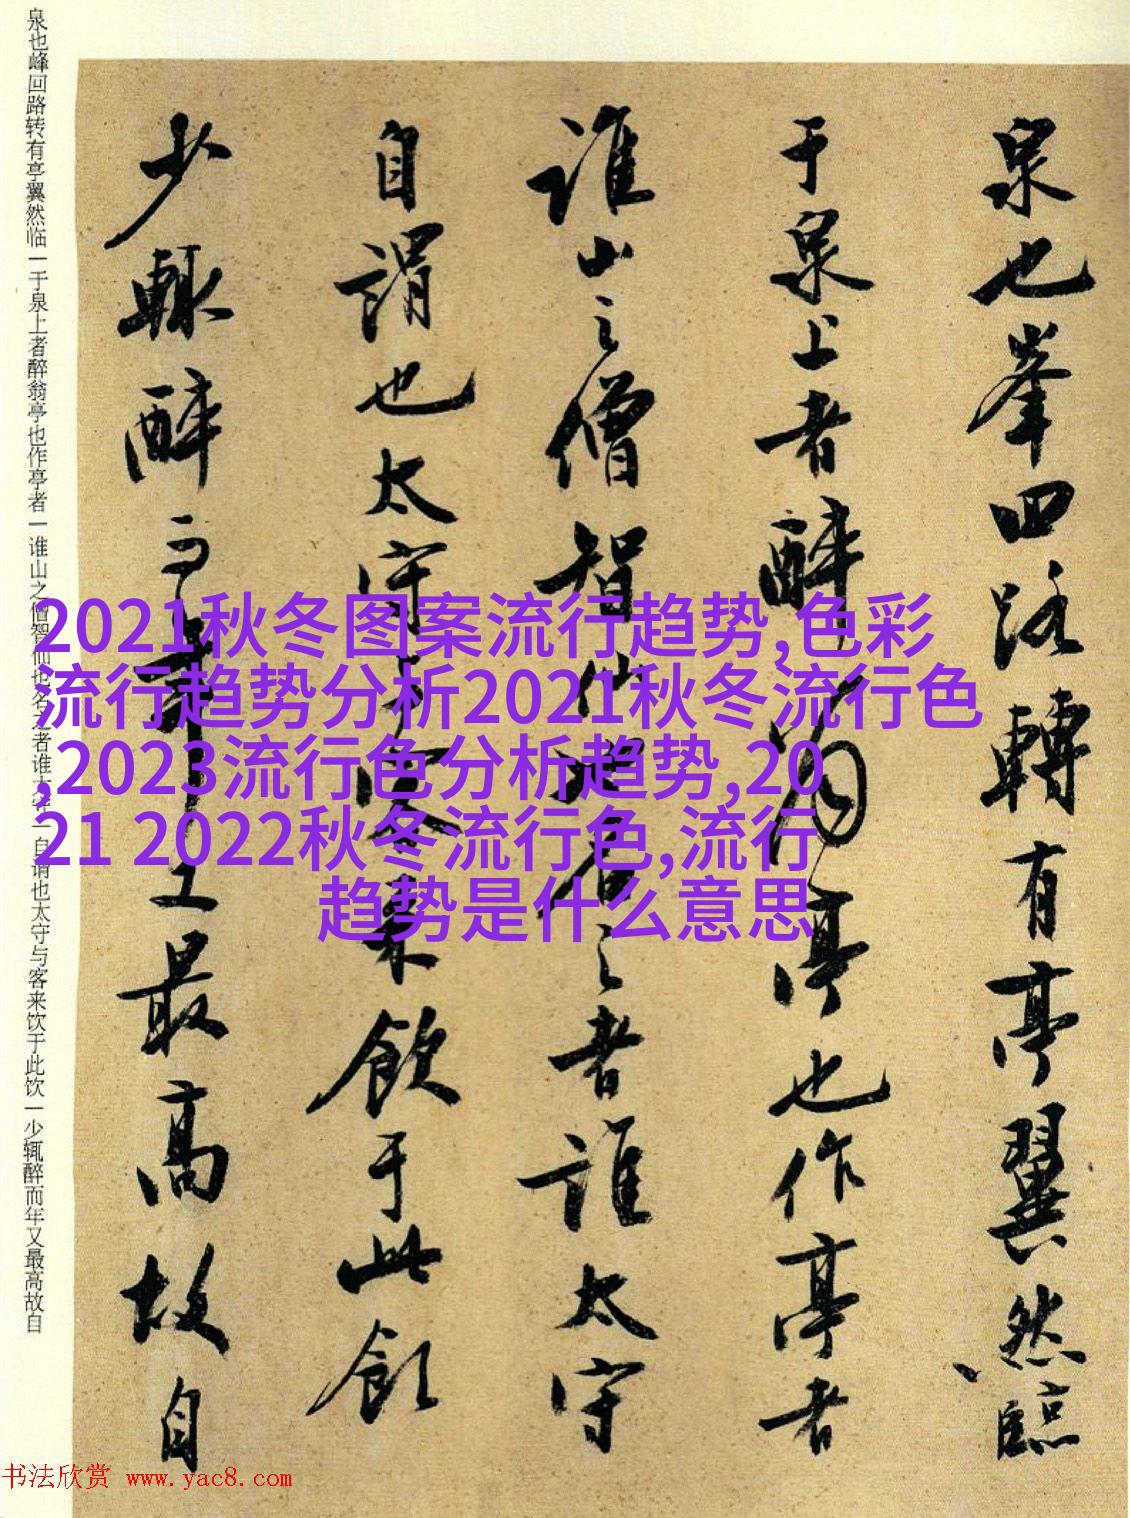 泉也峯回路轉有亭翼然臨
于泉上者醉翁亭也作亭者
誰山之僧智仙也名之者誰太守
自謂也太守与客来飲于此飲
少輒醉而年又最高故自
泉也峰回路转有亭翼然临一于泉上者醉翁亭也作亭者一谁山之僧智仙也名之者谁太守一自谓也太守与客来饮于此饮一少辄醉而年又最高故自
2021秋冬图案流行趋势,色彩
流行趋势分析2021秋冬流行色
,2023流行色分析趋势,20
21 2022秋冬流行色,流行
趋势是什么意思
书法欣赏 www.yac8.com